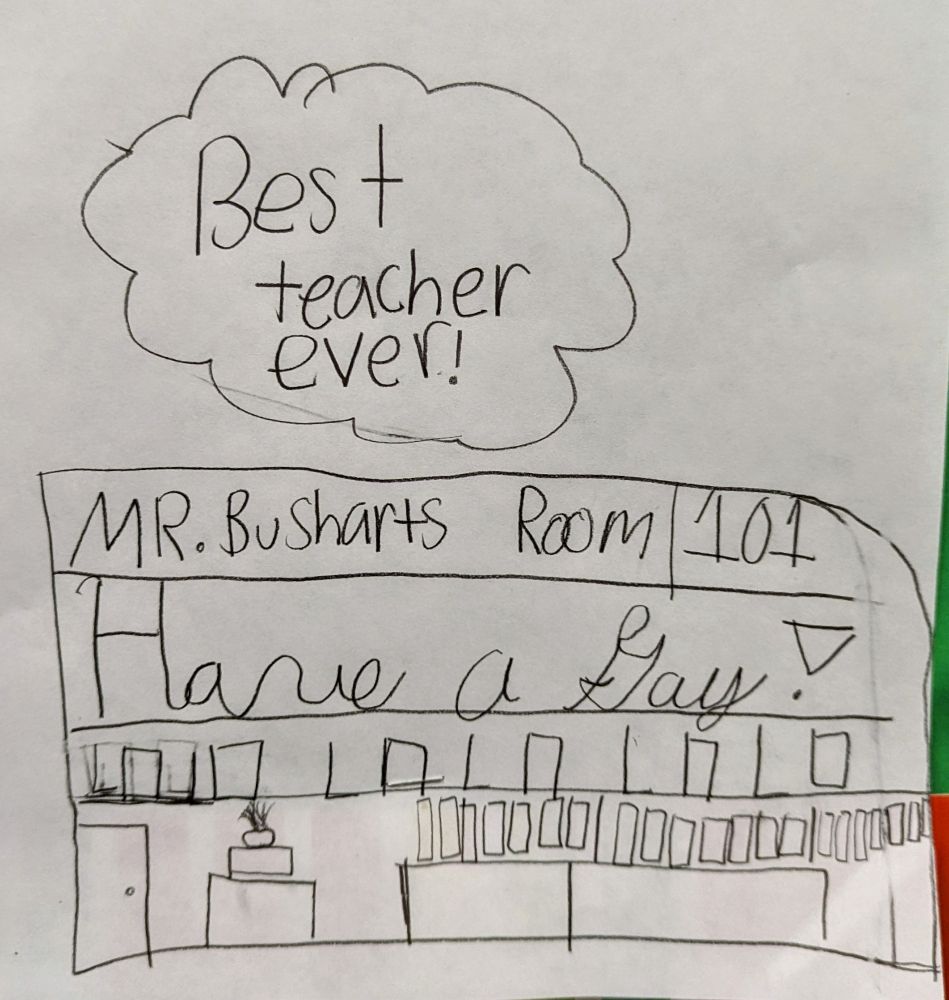 Best
teacher
ever!
MR. Busharts Room 101
Have a